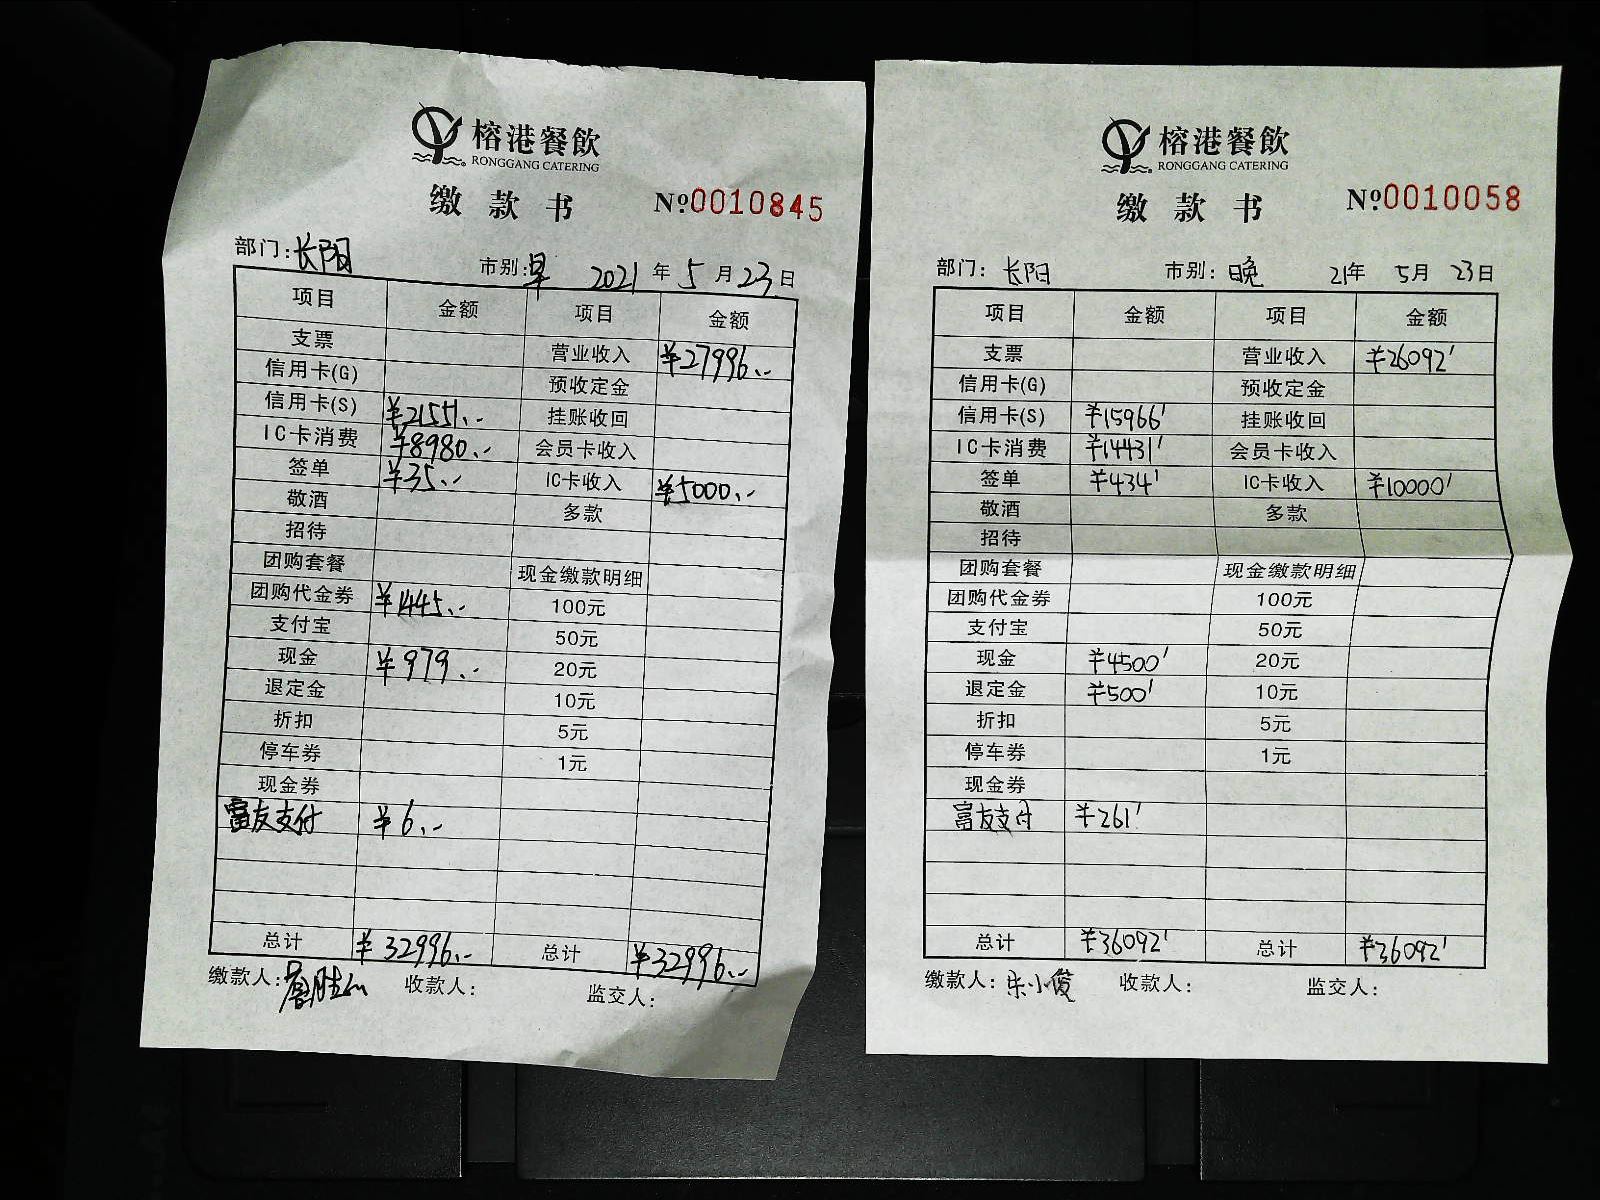 榕港餐飲
RONGGANG CATERING
缴款书 №0010845
部门:长阳 市别:早 2021年5月23日
项目 金额 项目 金额
支票 营业收入 ¥27996.-
信用卡(G) 预收定金
信用卡(S) ¥21551.- 挂账收回
IC卡消费 ¥8980.- 会员卡收入
签单 ¥35.- IC卡收入 ¥5000.-
敬酒 多款
招待
团购套餐 现金缴款明细
团购代金券 ¥1445.- 100元
支付宝 50元
现金 ¥979.- 20元
退定金 10元
折扣 5元
停车券 1元
现金券
富友支付 ¥6.-
总计 ¥32996.- 总计 ¥32996.-
缴款人: 收款人: 监交人:
榕港餐飲
RONGGANG CATERING
缴款书 №0010058
部门:长阳 市别:晚 21年5月23日
项目 金额 项目 金额
支票 营业收入 ¥26092'
信用卡(G) 预收定金
信用卡(S) ¥15966' 挂账收回
IC卡消费 ¥14431' 会员卡收入
签单 ¥434' IC卡收入 ¥10000'
敬酒 多款
招待
团购套餐 现金缴款明细
团购代金券 100元
支付宝 50元
现金 ¥4500' 20元
退定金 ¥500' 10元
折扣 5元
停车券 1元
现金券
富友支付 ¥261'
总计 ¥36092' 总计 ¥36092'
缴款人:宋小俊 收款人: 监交人: